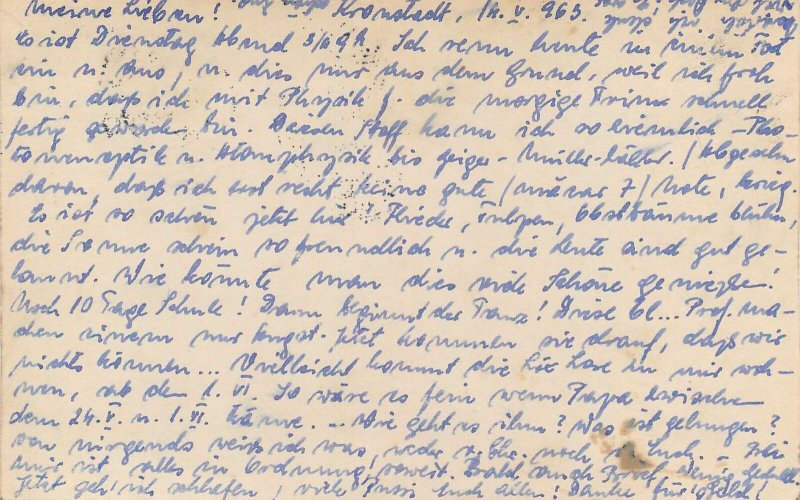 Meine Lieben! Kronstadt, 14. V. 963.
Es ist Dienstag Abend 3/4 9h. Ich renn heute in einem Tot
ein u. aus, u. dies nur aus dem Grund, weil ich froh
bin, daß ich mit Physik f. die morgige Prima schnell
fertig geworden bin. Diesen Stoff kann ich so ziemlich – Pho-
tonenoptik u. Atomphysik bis Geiger-Müller-Zähler. /Abgesehn
davon, daß ich erst recht keine gute /măcar 7/ Note, krieg.
Es ist so schön jetzt hier! Flieder, Tulpen, Obstbäume blühen,
die Sonne schein so freundlich u. die Leute sind gut ge-
launt. Wie könnte man dies viele Schöne genießen!
Noch 10 Tage Schule! Dann beginnt der Tanz! Diese bl... Prof. ma-
chen einem nur Angst. Jetzt kommen sie drauf, daß wir
nichts können... Vielleicht kommt die zu mir woh-
nen, ab dem 1. VI. So wäre es fein wenn Papa zwischen
dem 24. V. u. 1. VI. käme. – Wie geht es ihm? Was ist gelungen?
von nirgends weiss ich was, weder noch v. Euch. – Bei
mir ist alles in Ordnung, soweit. Bald auch Brief. Wenig Geduld.
Jetzt geh' ich schlafen / viele Pussi Euch allen! Danke für Geld!